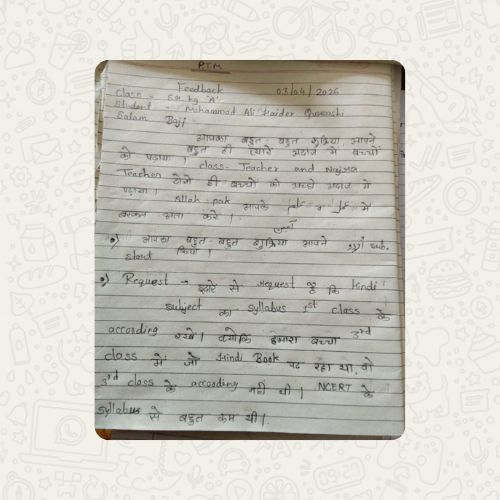 P.T.M
Feedback 03/04/2026
Class - Sr. kg 'A'
Student - Mohammad Ali Haider Qureshi
Salam Baji
आपका बहुत बहुत शुक्रिया, आपने
बहुत ही प्यारे अंदाज में बच्चों
को पढ़ाया। class-Teacher and Nazra
Teacher दोनों ही बच्चों को अच्छे अंदाज में
पढ़ाया। Allah pak आपके علم و عمل में
बरकत अता करे।
آمین
आपका बहुत-बहुत शुक्रिया आपने sub.
start किया।
Request → से request है कि Hindi
subject का syllabus 1st class के
according रखें। क्योंकि हमारा बच्चा 3rd
class में जो Hindi Book पढ़ रहा था, वो
3rd class के according नहीं थी। NCERT के
syllabus से बहुत कम थी।